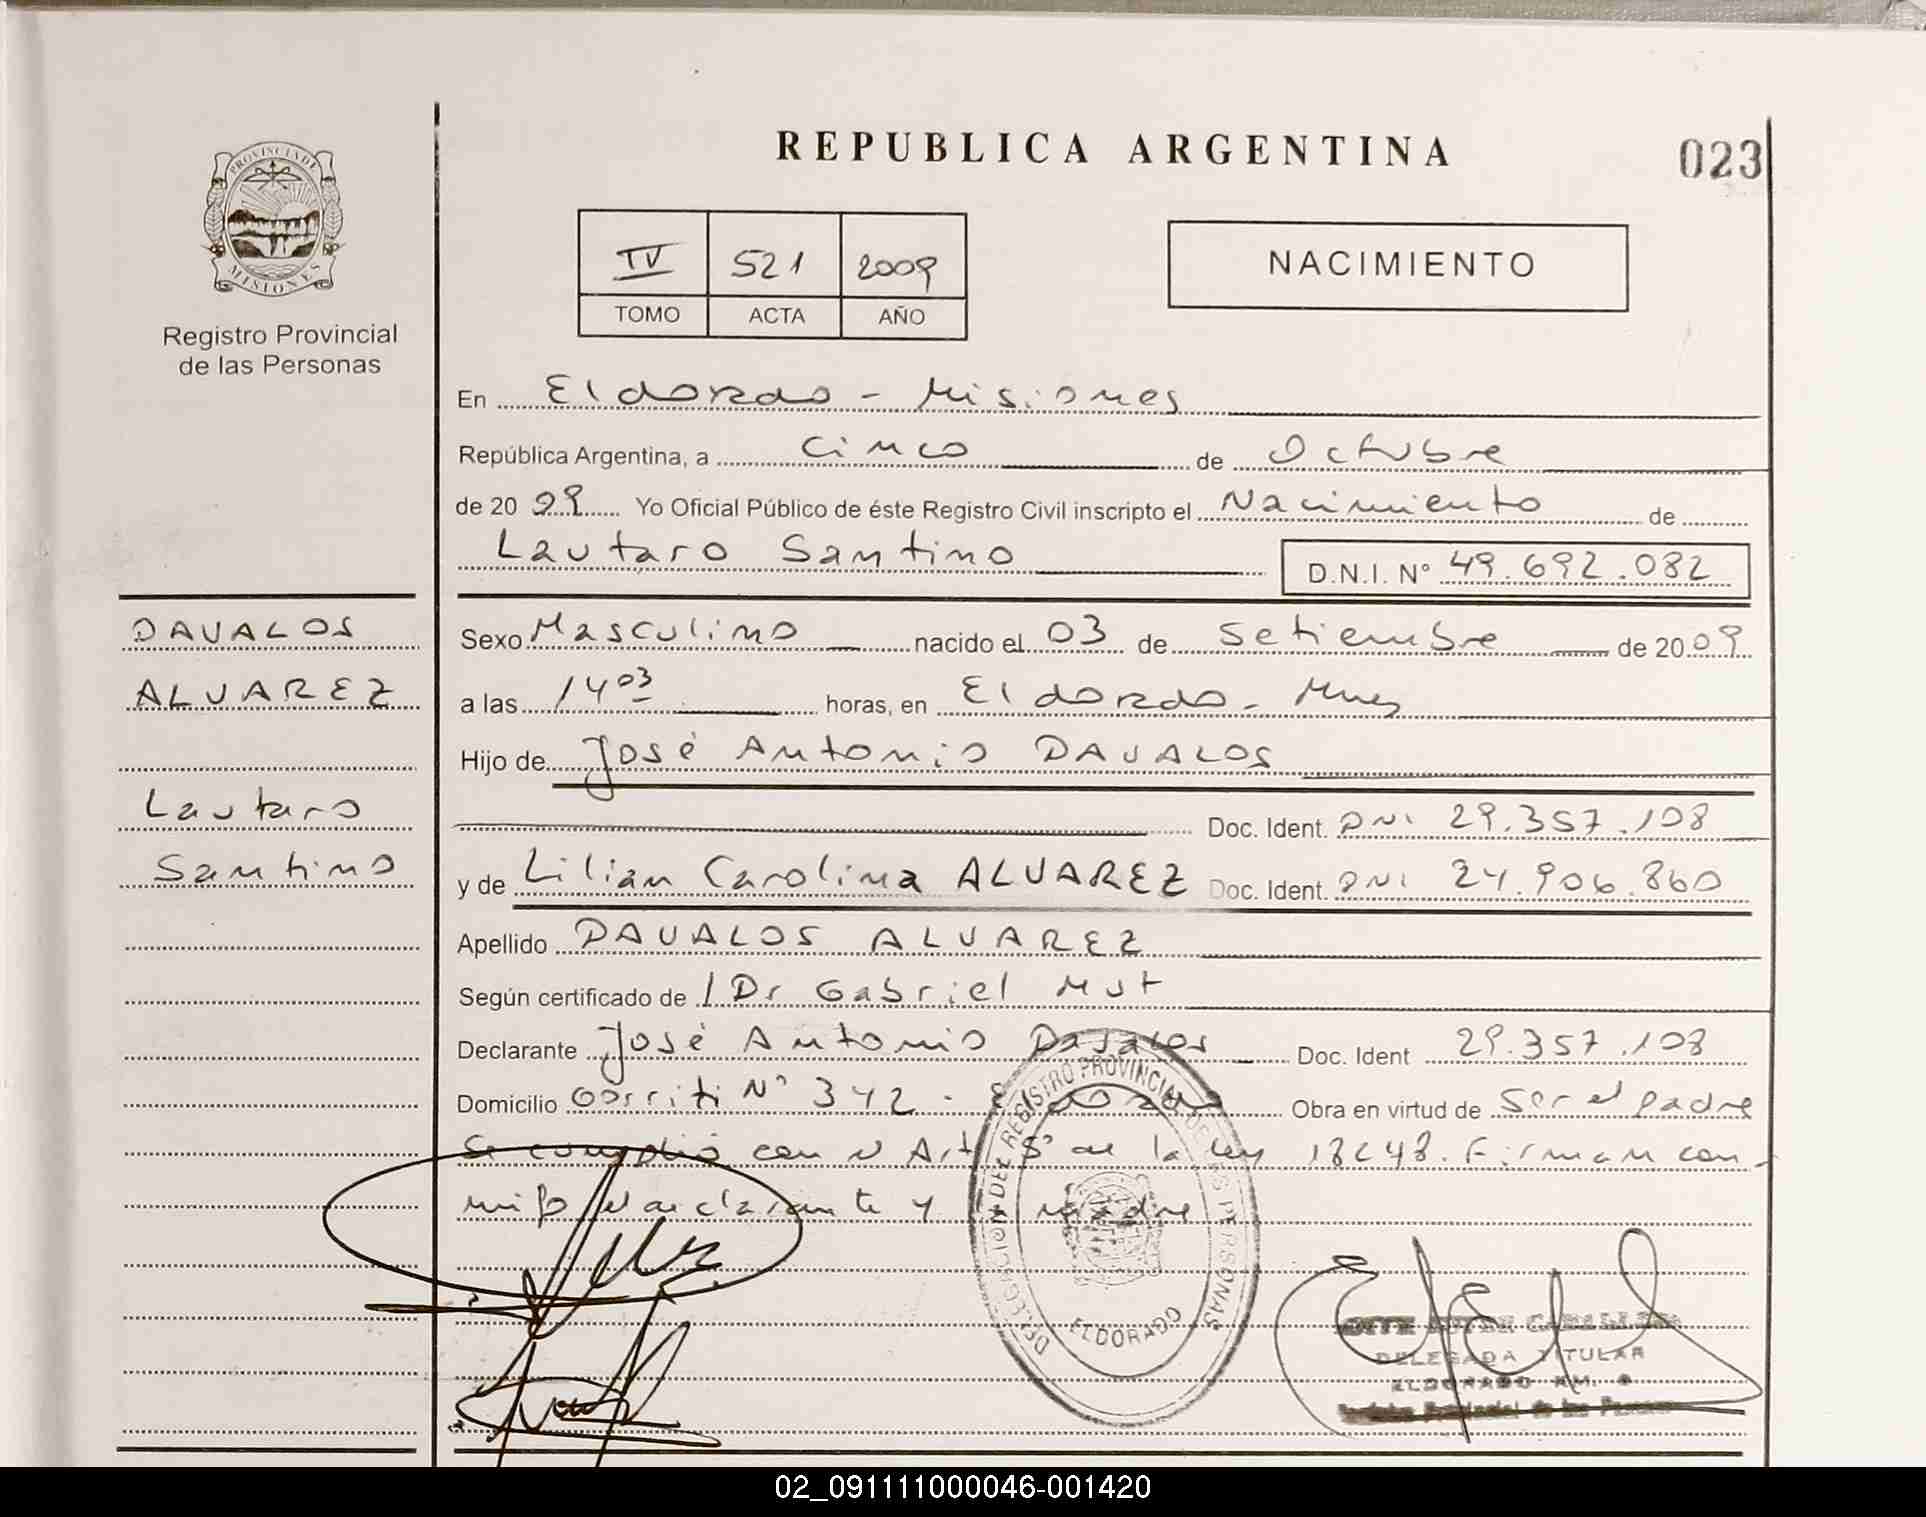 REPUBLICA ARGENTINA
023
PROVINCIA DE
MISIONES
Registro Provincial
de las Personas
IV 521 2009
TOMO ACTA AÑO
NACIMIENTO
En Eldorado - Misiones
República Argentina, a Cinco de Octubre
de 20 09 Yo Oficial Público de éste Registro Civil inscripto el Nacimiento de
Lautaro Santino D.N.I. N° 49.692.082
DAVALOS
ALVAREZ
Lautaro
Santino
Sexo Masculino nacido el 03 de Setiembre de 2009
a las 14 03 horas, en Eldorado - Mnes
Hijo de José Antonio DAVALOS
Doc. Ident. DNI 29.357.108
y de Lilian Carolina ALVAREZ Doc. Ident. DNI 24.906.860
Apellido DAVALOS ALVAREZ
Según certificado de / Dr Gabriel Mut
Declarante José Antonio Davalos Doc. Ident 29.357.108
Domicilio Gorriti N° 342 - Eldorado Obra en virtud de Ser el padre
Se cumplió con el Art 5° de la Ley 18248. Firman con-
migo el declarante y la madre
DELEGACION DEL REGISTRO PROVINCIAL DE LAS PERSONAS
ELDORADO
DELEGADA TITULAR
ELDORADO KM.
Registro Provincial de las Personas
02_091111000046-001420